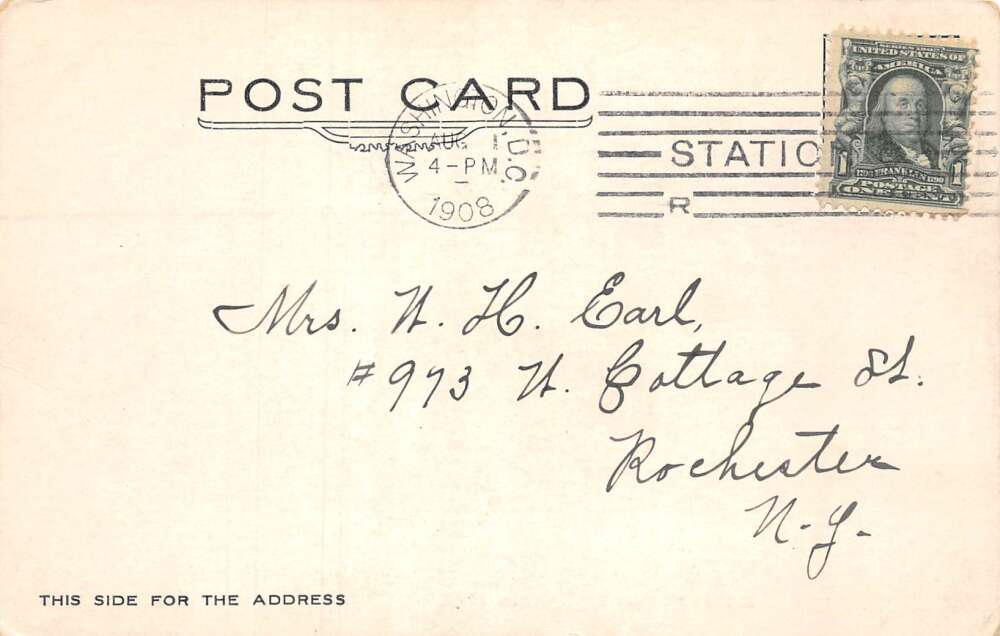 POST CARD
WASHINGTON, D.C.
AUG 1
4-PM
1908
STATIO
R
SERIES 1902
UNITED STATES OF
AMERICA
FRANKLIN
POSTAGE
1 ONE CENT 1
Mrs. W. H. Earl,
#973 W. Cottage St.
Rochester
N.Y.
THIS SIDE FOR THE ADDRESS